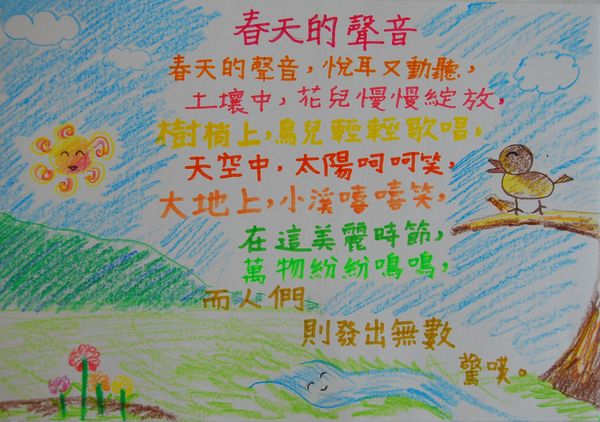 春天的聲音
春天的聲音，悅耳又動聽，
土壤中，花兒慢慢綻放，
樹梢上，鳥兒輕輕歌唱，
天空中，太陽呵呵笑，
大地上，小溪嘻嘻笑，
在這美麗時節，
萬物紛紛鳴鳴，
而人們
則發出無數
驚嘆。